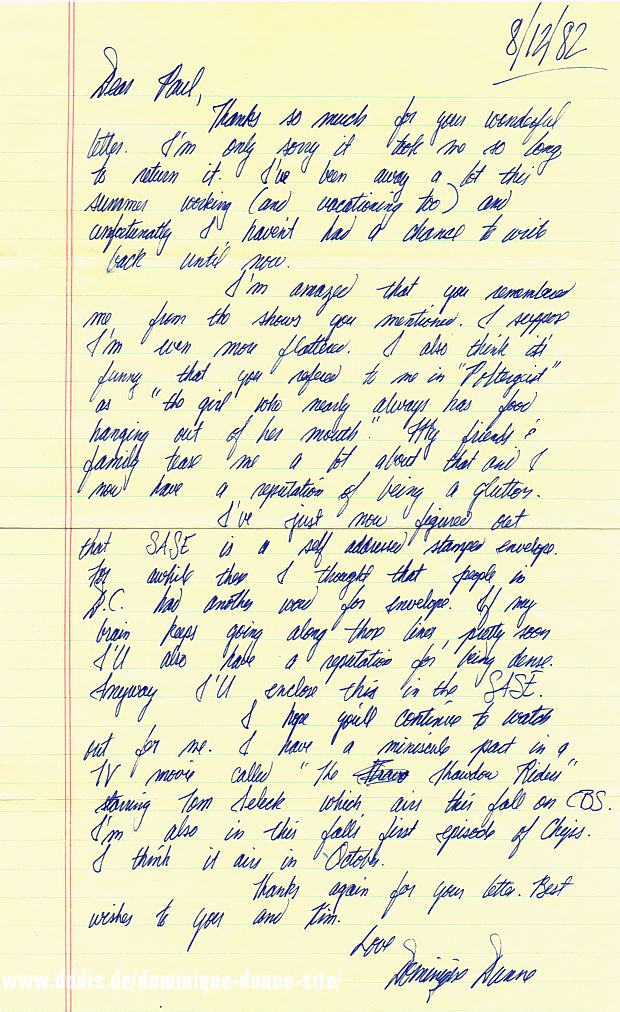 8/12/82
Dear Paul,
Thanks so much for your wonderful
letter. I'm only sorry it took me so long
to return it. I've been away a lot this
summer working (and vacationing too) and
unfortunatly I haven't had a chance to write
back until now.
I'm amazed that you remembered
me from the shows you mentioned. I suppose
I'm even more flattered. I also think it's
funny that you refered to me in "Poltergeist"
as "the girl who nearly always has food
hanging out of her mouth." My friends &
family tease me a lot about that and I
now have a reputation of being a glutton.
I've just now figured out
that SASE is a self addressed stamped envelope.
For awhile there I thought that people in
D.C. had another word for envelope. If my
brain keeps going along those lines, pretty soon
I'll also have a reputation for being dense.
Anyway I'll enclose this in the SASE.
I hope you'll continue to watch
out for me. I have a miniscule part in a
TV movie called "The Shadow Riders"
starring Tom Selleck which airs this fall on CBS.
I'm also in this fall's first episode of Chips.
I think it airs in October.
Thanks again for your letter. Best
wishes to you and Kim.
Love
Dominique Dunne
www.dddis.de/dominique-dunne-site/